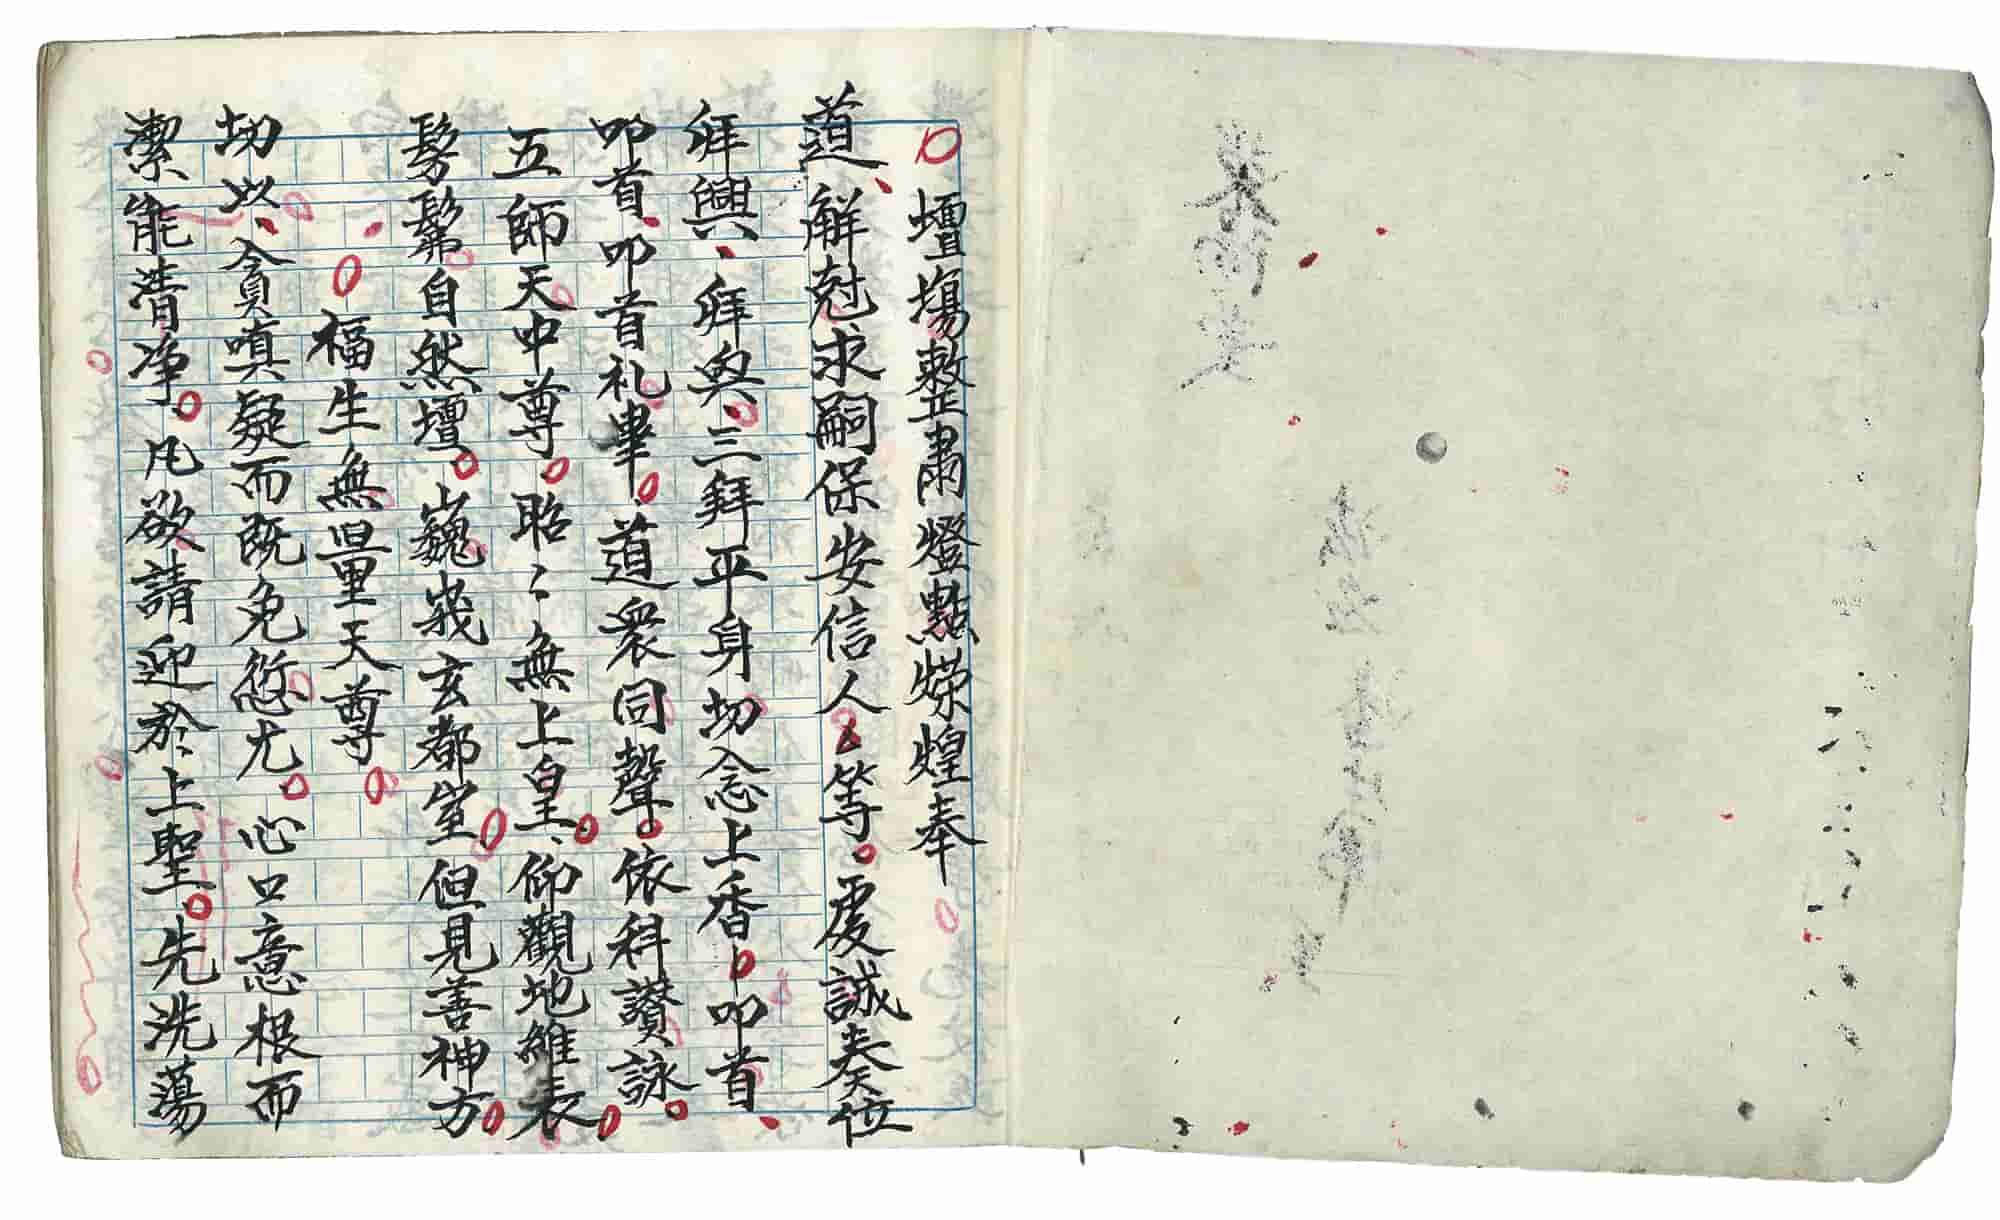 壇塲整肅燈點熒煌奉
道、解尅求嗣保安信人〻等。虔誠奏位
拜興、拜興、三拜平身切念上香叩首、
叩首、叩首礼畢。道衆同聲。依科讃詠。
五師天中尊。昭〻無上皇、仰觀地維表
髣髴自然壇。巍峩玄都室但見善神方
福生無量天尊。
切以、貪嗔疑而既免愆尤。心口意根而
潔能清净。凡欲請迎於上聖。先洗蕩